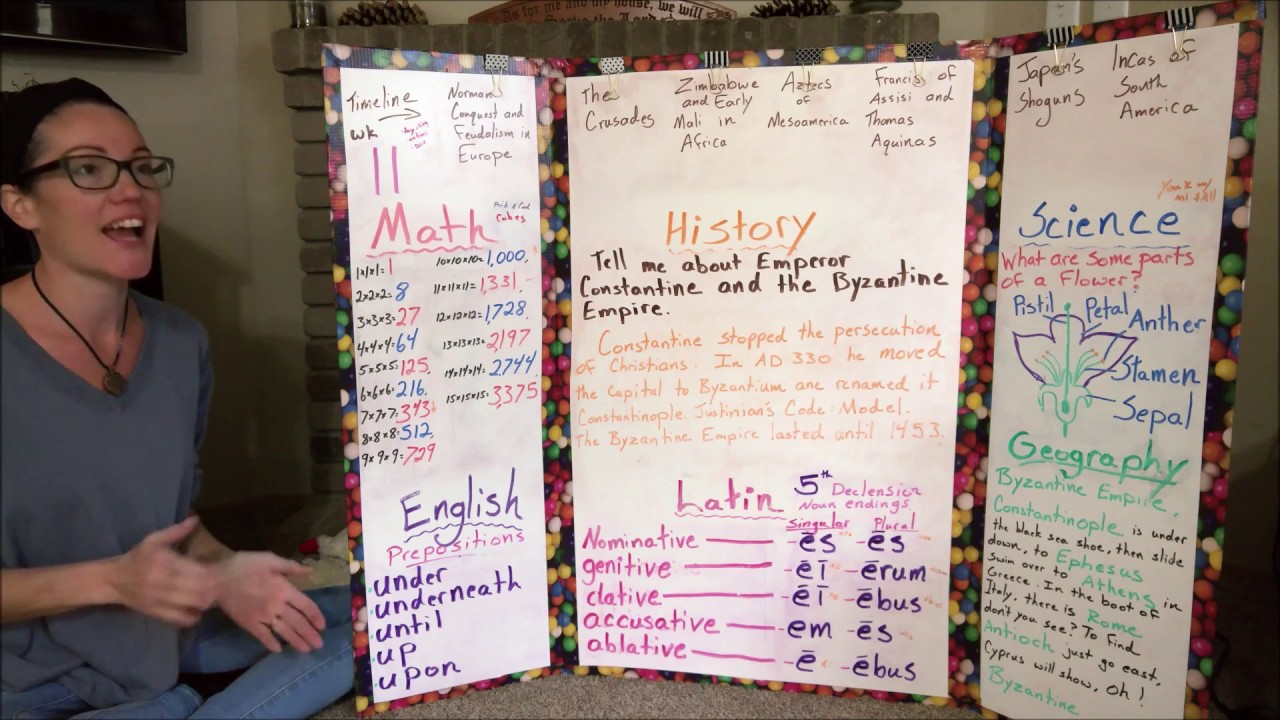 As for me and my house, we will
Serve the Lord
Timeline
wk
11
Norman
Conquest and
Feudalism in
Europe
The
Crusades
Zimbabwe
and Early
Mali in
Africa
Aztecs
of
Mesoamerica
Francis of
Assisi and
Thomas
Aquinas
Japan's
Shoguns
Incas of
South
America
Math
cubes
1x1x1=1
2x2x2=8
3x3x3=27
4x4x4=64
5x5x5=125
6x6x6=216
7x7x7=343
8x8x8=512
9x9x9=729
10x10x10=1,000
11x11x11=1,331
12x12x12=1,728
13x13x13=2197
14x14x14=2,744
15x15x15=3375
English
Prepositions
under
underneath
until
up
upon
History
Tell me about Emperor
Constantine and the Byzantine
Empire.
Constantine stopped the persecution
of Christians. In AD 330 he moved
the capital to Byzantium are renamed it
Constantinople. Justinian's Code: Model.
The Byzantine Empire lasted until 1453.
Latin 5th Declension
Noun endings
Singular Plural
Nominative -ēs -ēs
genitive -ēī -ērum
dative -ēī -ēbus
accusative -em -ēs
ablative -ē -ēbus
Science
What are some parts
of a Flower?
Pistil Petal Anther
Stamen
Sepal
Geography
Byzantine Empire,
Constantinople is under
the black sea shoe, then slide
down, to Ephesus
Swim over to Athens in
Greece. In the boot of
Italy, there is Rome
don't you see? To find
Antioch just go east,
Cyprus will show, oh!
Byzantine